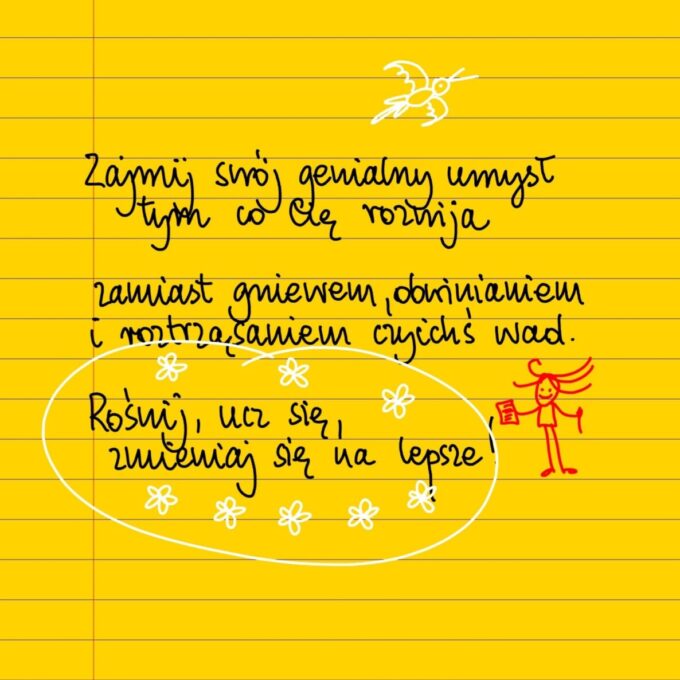 Zajmij swój genialny umysł
tym co Cię rozwija
zamiast gniewem, obwinianiem
i roztrząsaniem czyichś wad.
Rośnij, ucz się,
zmieniaj się na lepsze!